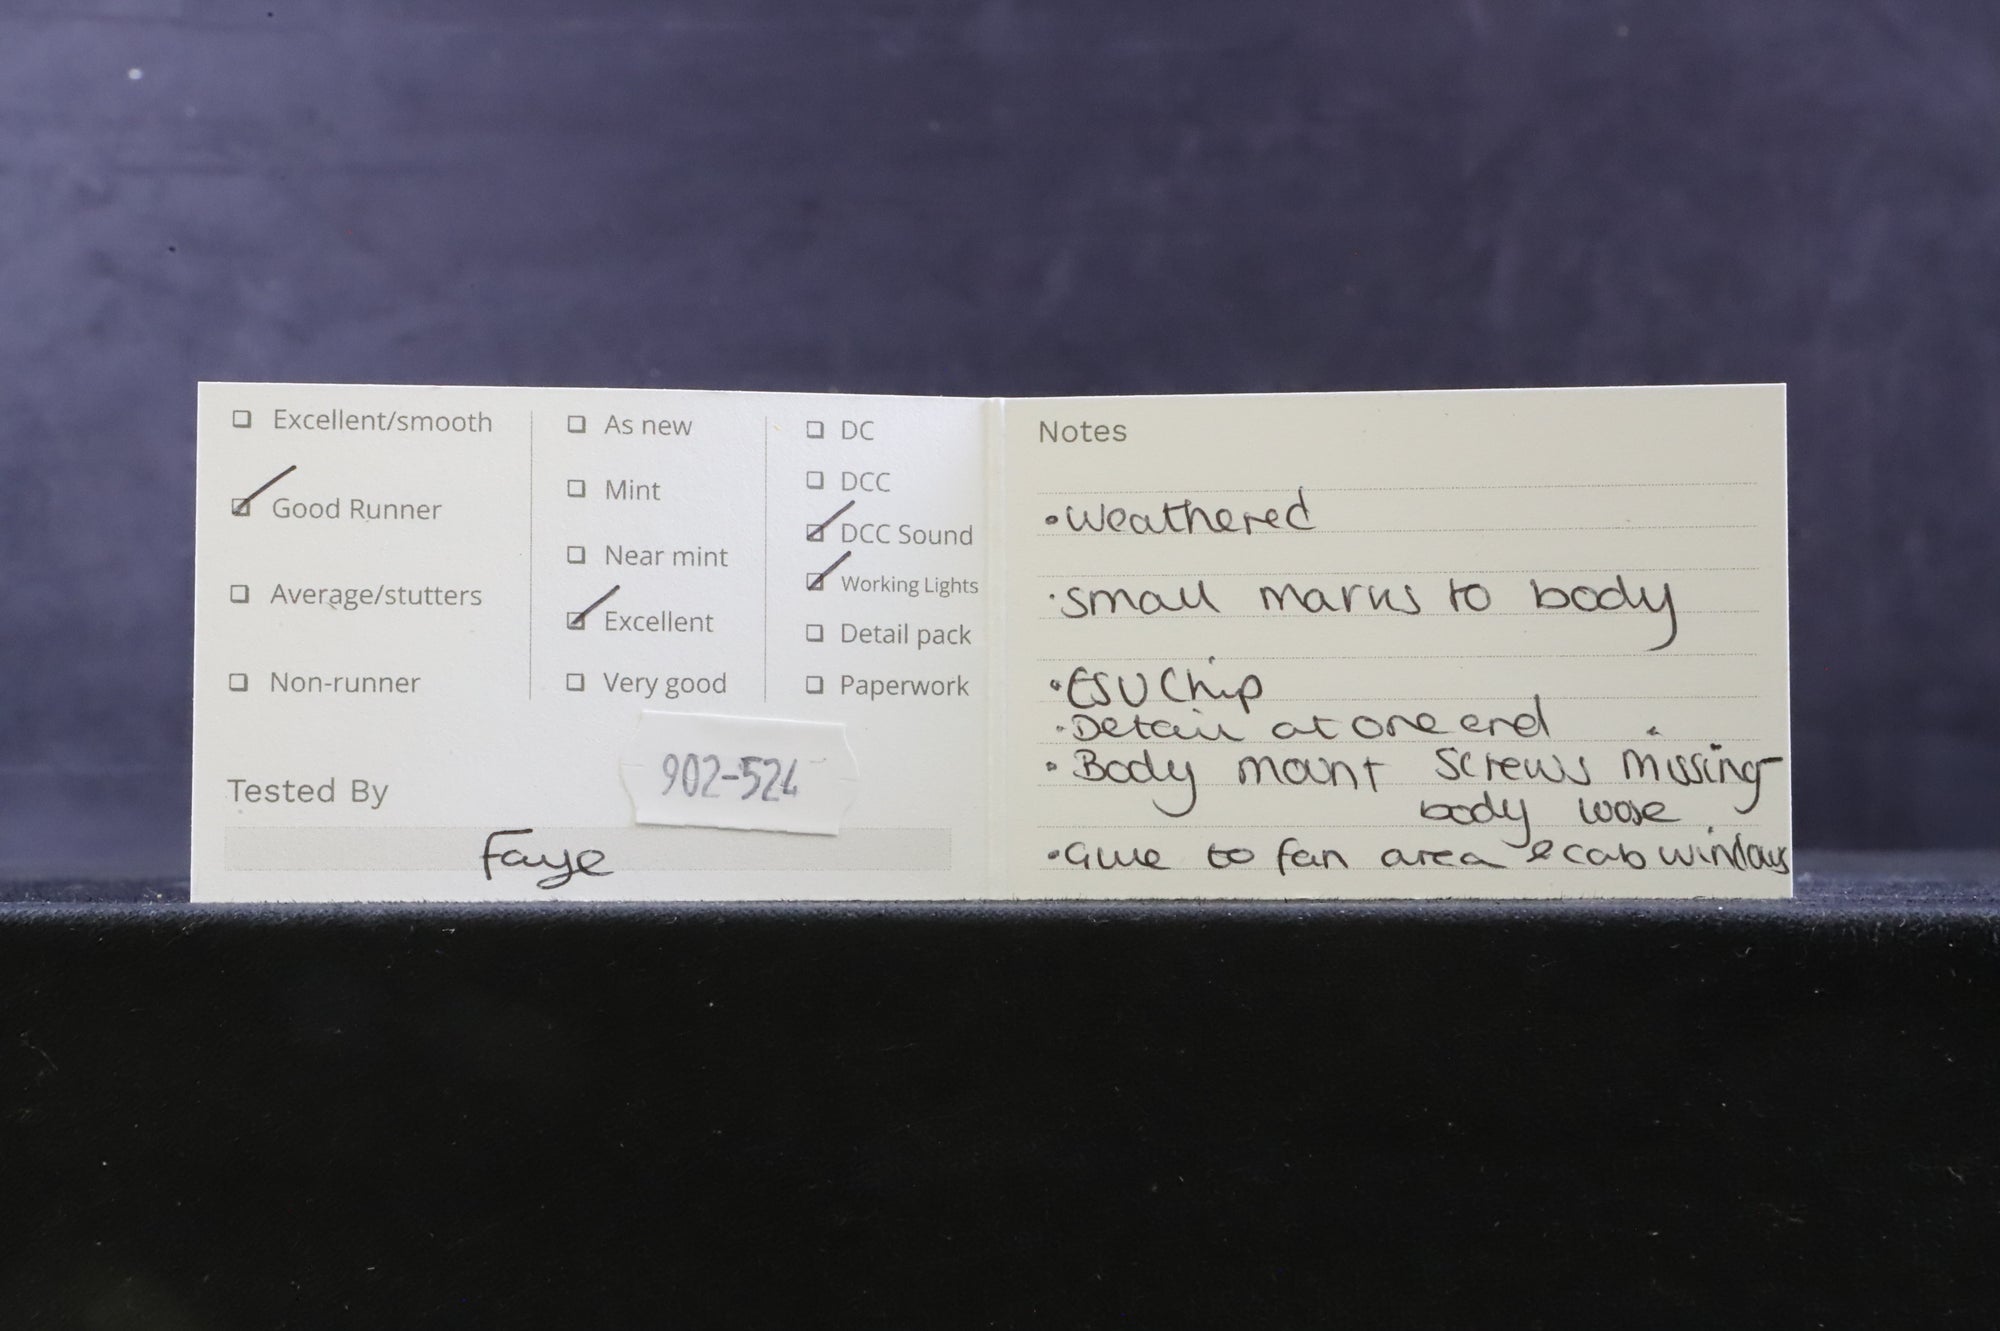 Excellent/smooth
Good Runner
Average/stutters
Non-runner
As new
Mint
Near mint
Excellent
Very good
DC
DCC
DCC Sound
Working Lights
Detail pack
Paperwork
902-524
Tested By
Faye
Notes
•Weathered
•small marks to body
•ESU Chip
•Detail at one end
•Body mount screws missing
body loose
•Glue to fan area & cab windows